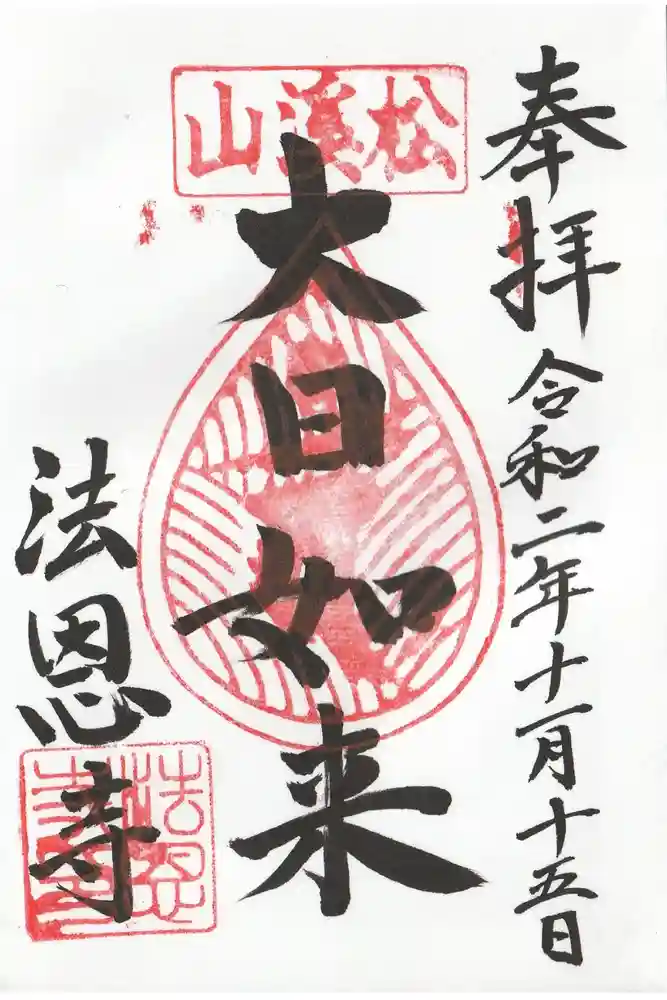 奉拝
令和二年十一月十五日
松渓山
大日如来
法恩寺
法恩寺